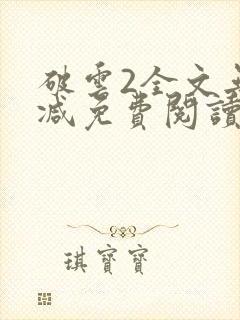 破雲2全文無
減免費閱讀
琪寶寶